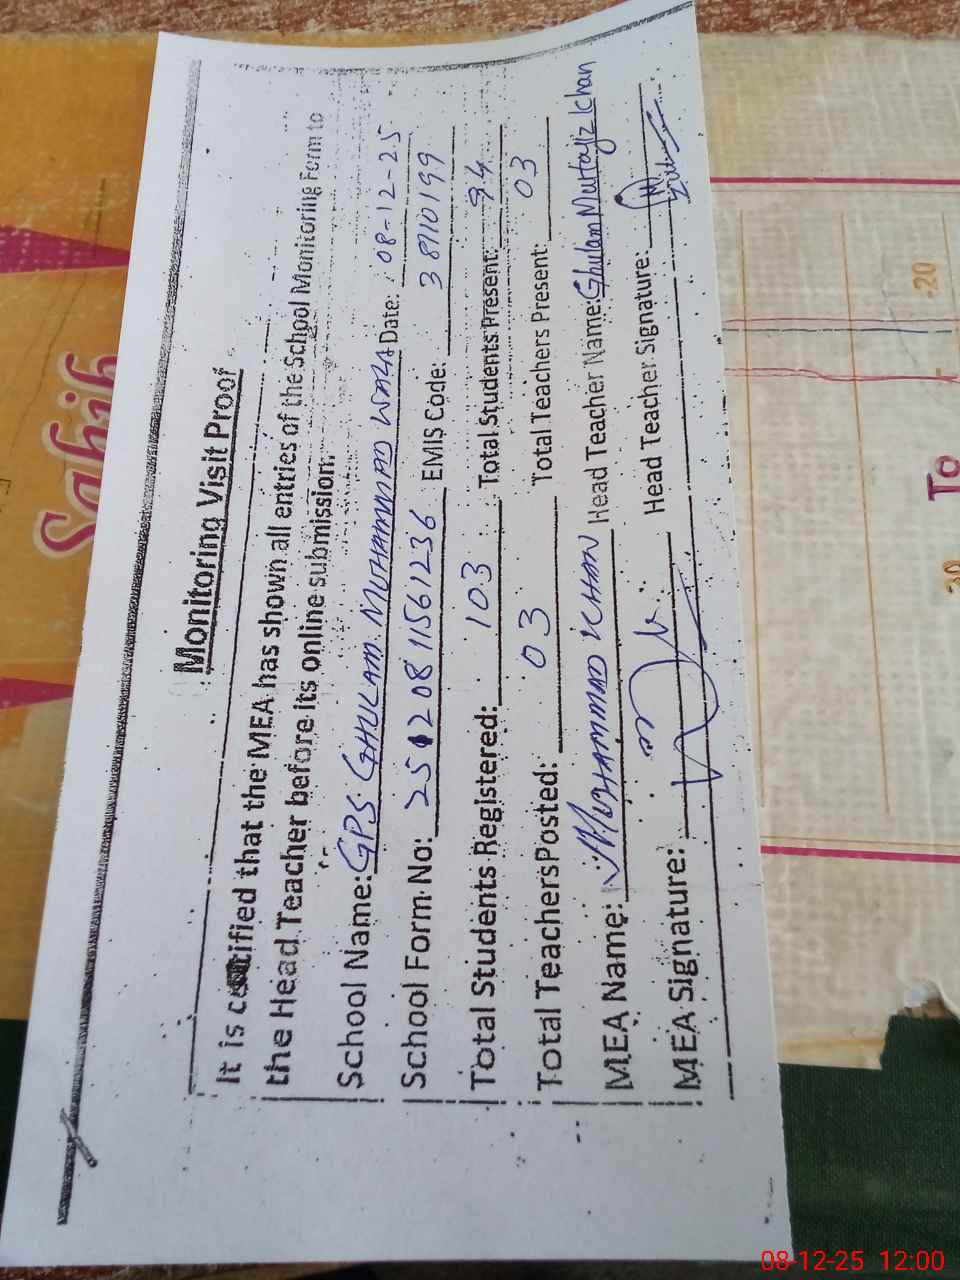 Monitoring Visit Proof
It is certified that the MEA has shown all entries of the School Monitoring Form to
the Head Teacher before its online submission.
School Name: GPS GHULAM MUHAMMAD WALA Date: 08-12-25
School Form No: 25120811561236 EMIS Code: 38110199
Total Students Registered: 103 Total Students Present: 94
Total Teachers Posted: 03 Total Teachers Present: 03
MEA Name: MUHAMMAD KHAN Head Teacher Name: Ghulam Murtajiz Khan
MEA Signature: Head Teacher Signature:
Sahih
20
30
To
08-12-25 12:00